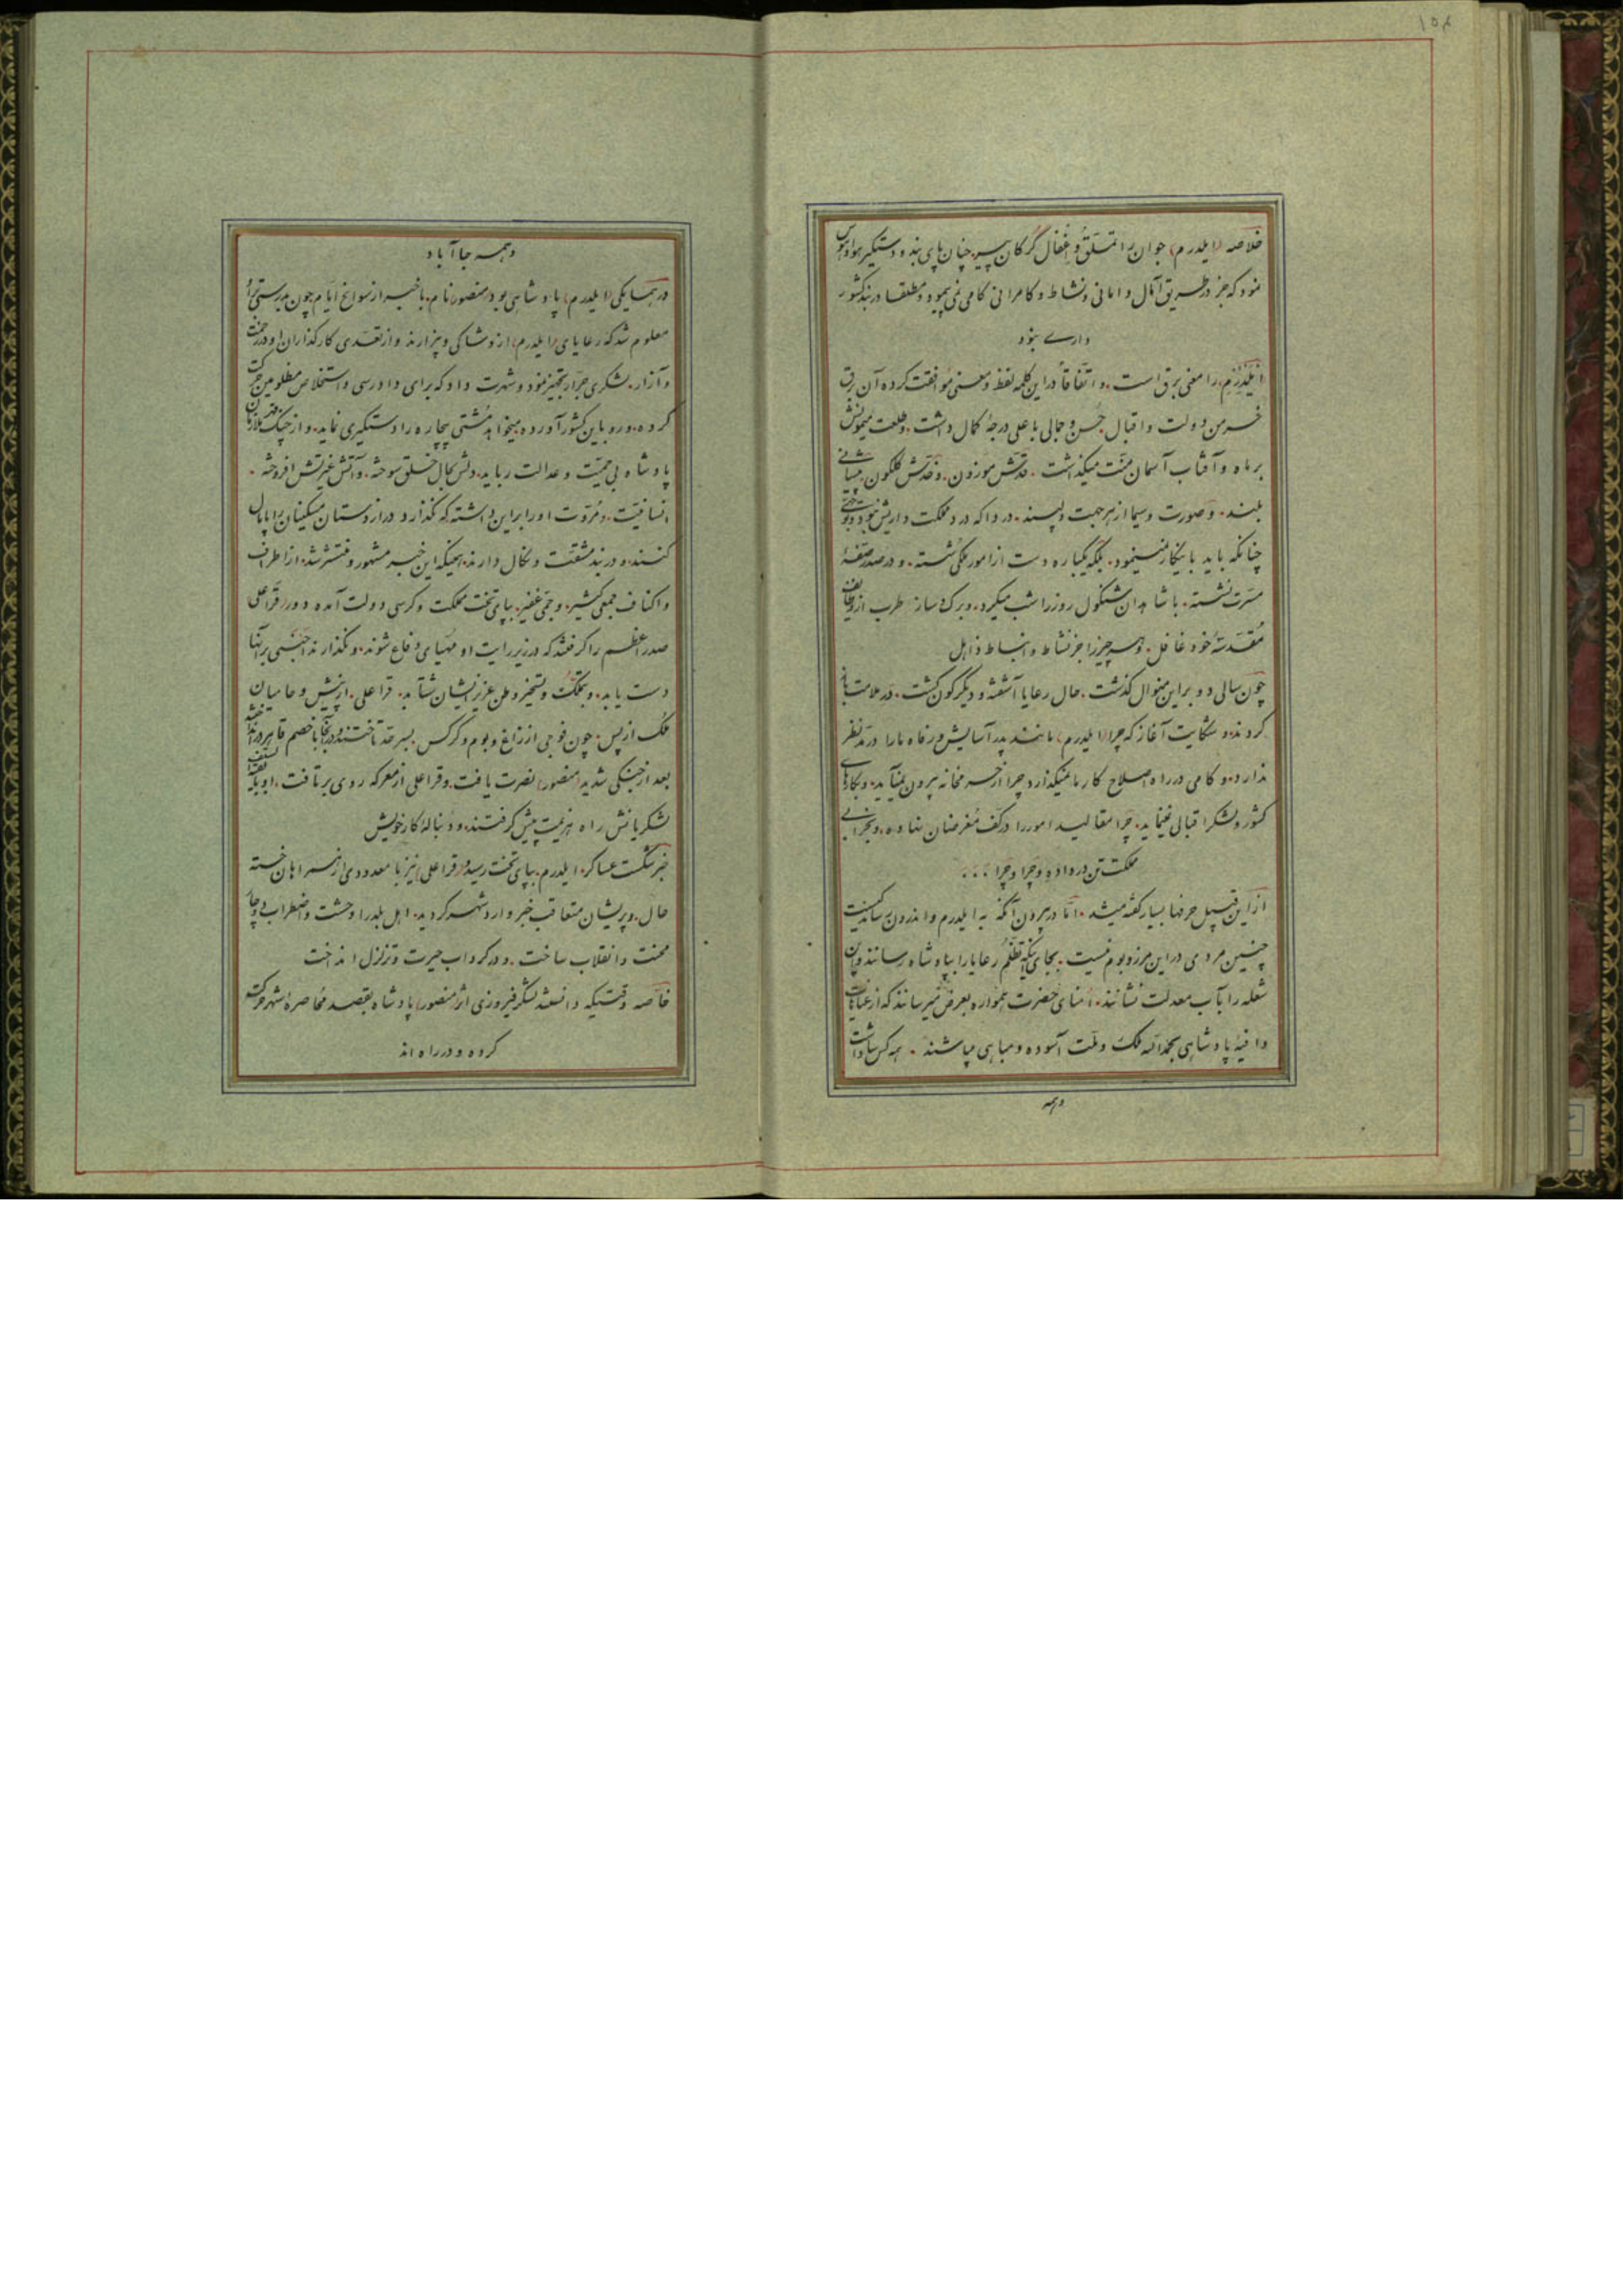 ۱۵۸
خلاصه (ایلدرم) جوان را تملق و اغفال گرگان پیر چنان پای بند و دستگیر هوا و هوس
نمود که جز در طریق آمال و امانی و نشاط و کامرانی گامی نمی پیمود و مطلقا در بند کشور
داری نبود
ایلدرم را معنی برق است. و اتفاقاً در این کلمه لفظ و معنی موافقت کرده آن برق
خرمن دولت و اقبال حسن و جمالی باعلی درجهٔ کمال داشت. و طلعت میمونش
بر ماه و آفتاب آسمان منت میگذاشت. قدش موزون. و خدش گلگون پیشانی
بلند. و صورت و سیما از هر جهت دلپسند. دردا که در مملکت داریش نبود و توجهی
چنانکه باید باینکار نمینمود. بلکه یکباره دست از امور ملکی شسته. و در صدر صفهٔ
مسرت نشسته. با شاهدان شنگول روز را شب میکرد. و برگ ساز طرب از وظایف
مقدسهٔ خود غافل. و همه چیز را جز نشاط و انبساط ذاهل
چون سالی دو بر این منوال گذشت. حال رعایا آشفته و دیگرگون گشت. در ملامت باز
کردند. و شکایت آغاز که چرا (ایلدرم) مانند پدر آسایش و رفاه ما را در مد نظر
ندارد. و گامی در راه اصلاح کار ما نمیگذارد چرا از حرمخانه بیرون نمیآید. و بکارهای
کشور و لشکر اقبالی نمینماید. چرا مقالید امور را در کف مغرضان نهاده. و بخرابی
مملکت تن در داده و چرا و چرا ...
از این قبیل حرفها بسیار گفته میشد. اما در بیرون آنکه به ایلدرم و اندرون رساند کیست
چنین مردی در این مرز و بوم نیست. بجای اینکه تظلم رعایا را بپادشاه رسانند و آن
شعله را بآب معدلت نشانند. امنای حضرت همواره بعرض میرسانند که از عنایات
وافیهٔ پادشاهی بحمدالله ملک و ملت آسوده و مباهی میباشند. همه کس شاد است
و همه
و همه جا آباد
در همسایگی (ایلدرم) پادشاهی بود (منصور) نام. با خبر از سوانح ایام چون بدرستی او را
معلوم شد که رعایای (ایلدرم) از او شاکی و بیزارند و از تعدی کارگذاران او در زحمت
و آزار. لشکری جرار تجهیز نمود و شهرت داد که برای دادرسی و استخلاص مظلومین حرکت
کرده. و رو باین کشور آورده میخواهد مشتی بیچاره را دستگیری نماید. و از چنگ ملازمان
پادشاه بی حمیت و عدالت رباید. دلش بحال خلق سوخته. و آتش غیرتش افروخته.
انسانیت. و مروت او را بر این داشته که نگذارد درازدستان مسکینان را پامال
کنند. و در بند مشقت و نکال دارند. همینکه این خبر مشهور و منتشر شد. از اطراف
و اکناف جمعی کثیر. و جمی غفیر. بپای تخت مملکت و کرسی دولت آمده دور (قراعلی)
صدر اعظم را گرفتند که در زیر رایت او مهیای دفاع شوند. و نگذارند اجنبی بر آنها
دست یابد. و بتملک و تسخیر وطن عزیز ایشان شتابد. قراعلی. از پیش و حامیان
ملک از پس. چون فوجی از زاغ و بوم و کرکس. بسرحد تاختند و در آنجا با خصم قاهر در انداختند
بعد از جنگی شدید (منصور) نصرت یافت. و قراعلی از معرکه روی بر تافت. او با بقیة السیف
لشکریانش راه هزیمت پیش گرفتند. و دنبالهٔ کار خویش
خبر شکست عساکر. ایلدرم. بپای تخت رسید و (قراعلی) نیز با معدودی از همراهان خسته
حال. و پریشان متعاقب خبر وارد شهر گردید. اهل بلد را وحشت و اضطراب دوچار
محنت و انقلاب ساخت. و در گرداب حیرت و تزلزل انداخت
خاصه وقتیکه دانستند لشکر فیروزی اثر (منصور) پادشاه بقصد محاصرهٔ شهر حرکت
کرده و در راه اند